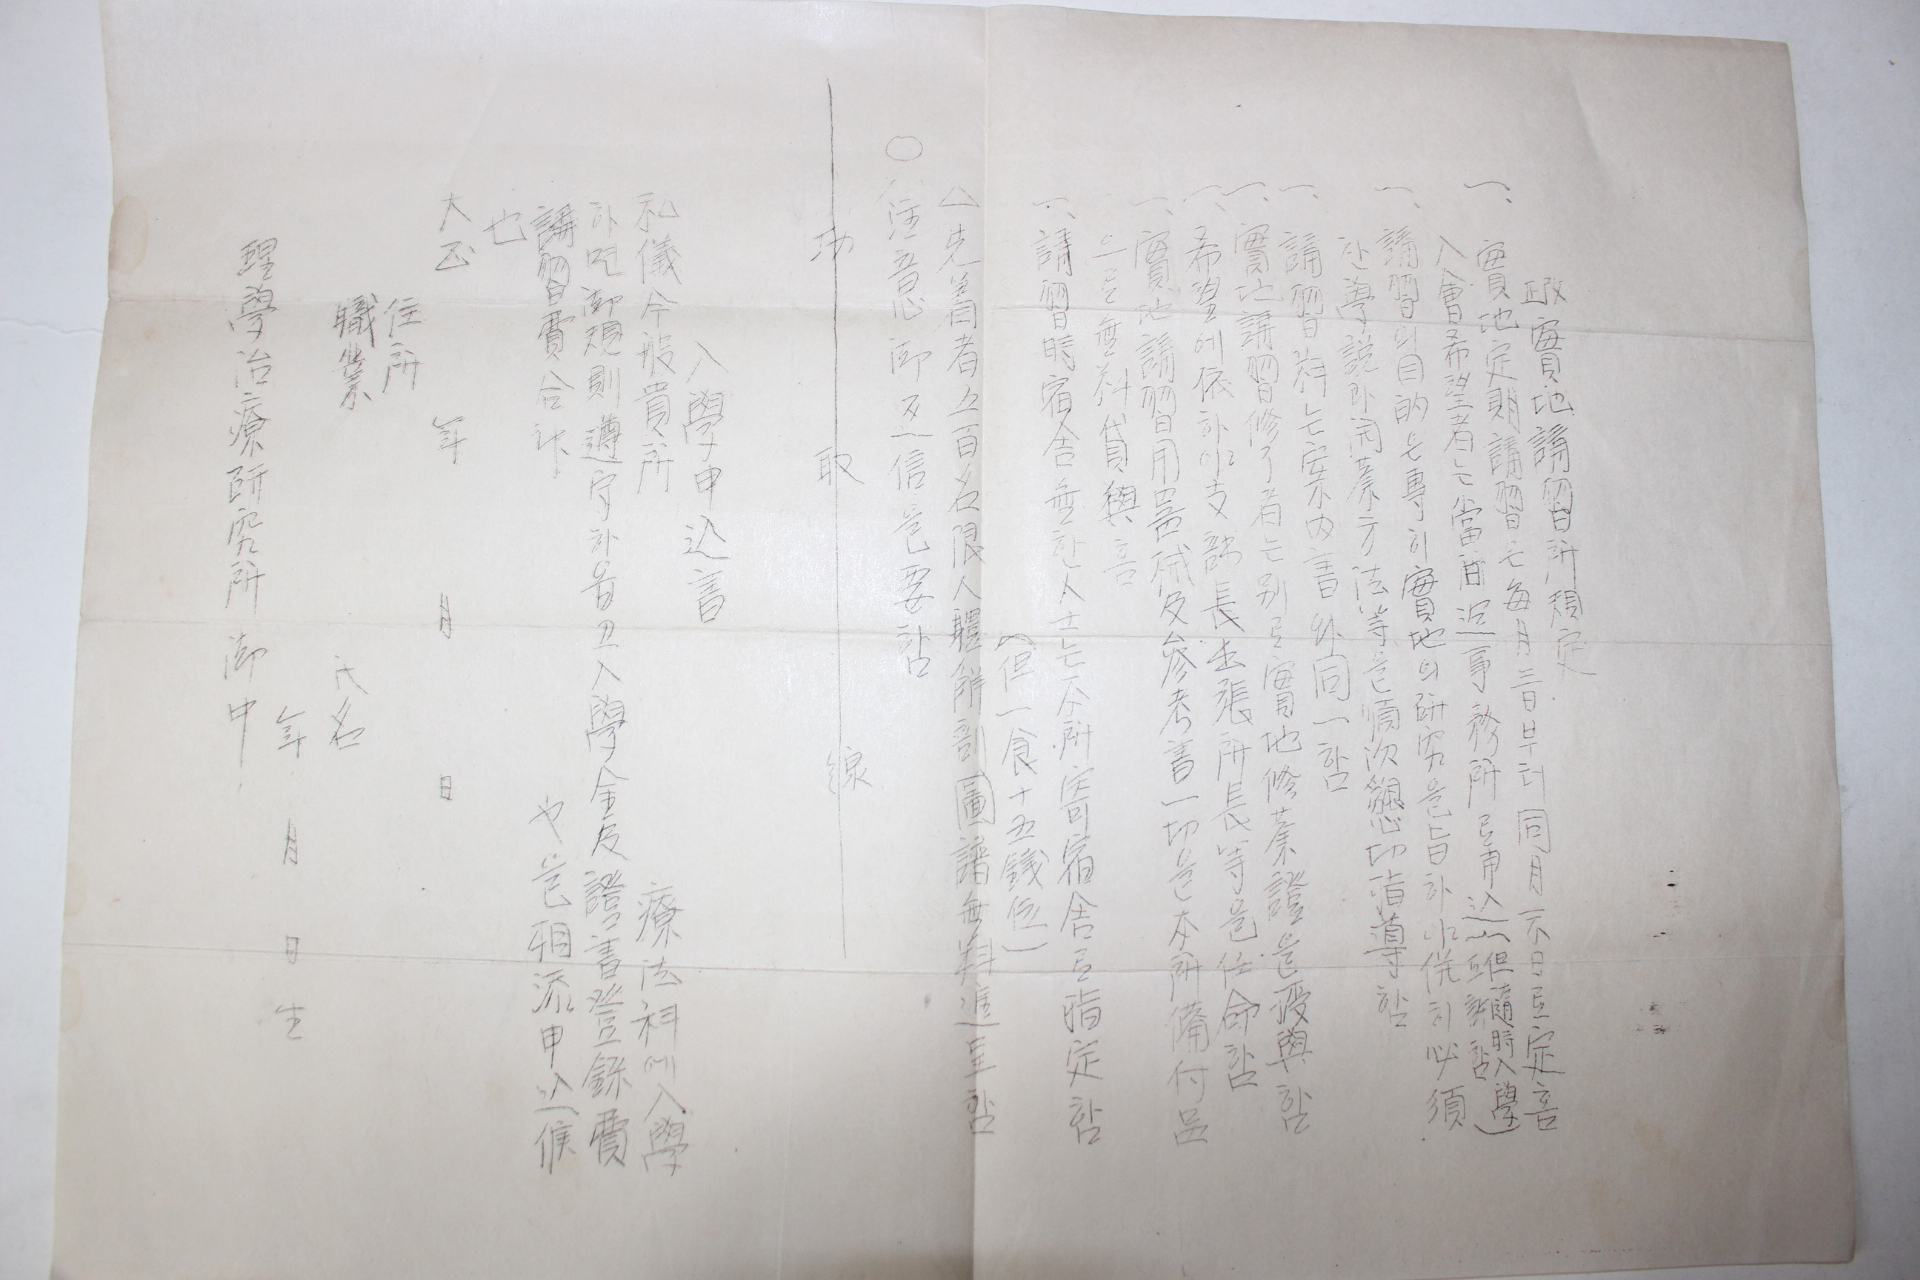 實地講習所規定
一、實地定期講習은每月三日부터同月 日로定홈
入會希望者는當 事務所로申込 (但隨時入學)
一、講習의目的은專히實地의硏究을旨하야供히必須
한學說과 方法等을順次懇切指導함
一、講習料는案內書와同一함
一、實地講習修了者는別로實地修業證을授與함
一、希望에依하야支部長出張所長等을任命함
一、實地講習用器械及參考書一切을本所備付品
으로無料貸與홈
一、講習時宿舍無한人士는本所寄宿舍로指定함
(但一食十五錢位)
△先着者五百名限人體解剖圖譜無料進呈함
○注意 御返信을要함
切取線
入學申込書
私儀今般貴所 療法科에入學
하 御規則遵守하 고入學金及證書登錄費
講習費合計 也을相添申込候
也
大正 年 月 日
住所
職業
氏名
年 月 日生
理學治療硏究所御中